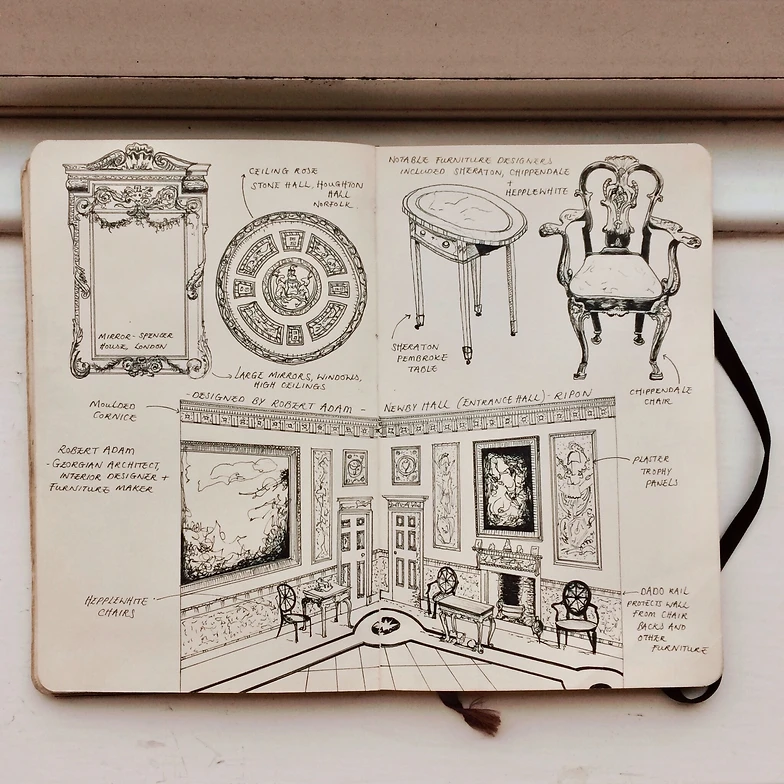 CEILING ROSE
STONE HALL, HOUGHTON
HALL
NORFOLK
MIRROR - SPENCER
HOUSE, LONDON
LARGE MIRRORS, WINDOWS,
HIGH CEILINGS
NOTABLE FURNITURE DESIGNERS
INCLUDED SHERATON, CHIPPENDALE
+
HEPPLEWHITE
SHERATON
PEMBROKE
TABLE
CHIPPENDALE
CHAIR
- DESIGNED BY ROBERT ADAM - NEWBY HALL (ENTRANCE HALL) - RIPON
MOULDED
CORNICE
ROBERT ADAM
- GEORGIAN ARCHITECT,
INTERIOR DESIGNER +
FURNITURE MAKER
HEPPLEWHITE
CHAIRS
PLASTER
TROPHY
PANELS
DADO RAIL
PROTECTS WALL
FROM CHAIR
BACKS AND
OTHER
FURNITURE